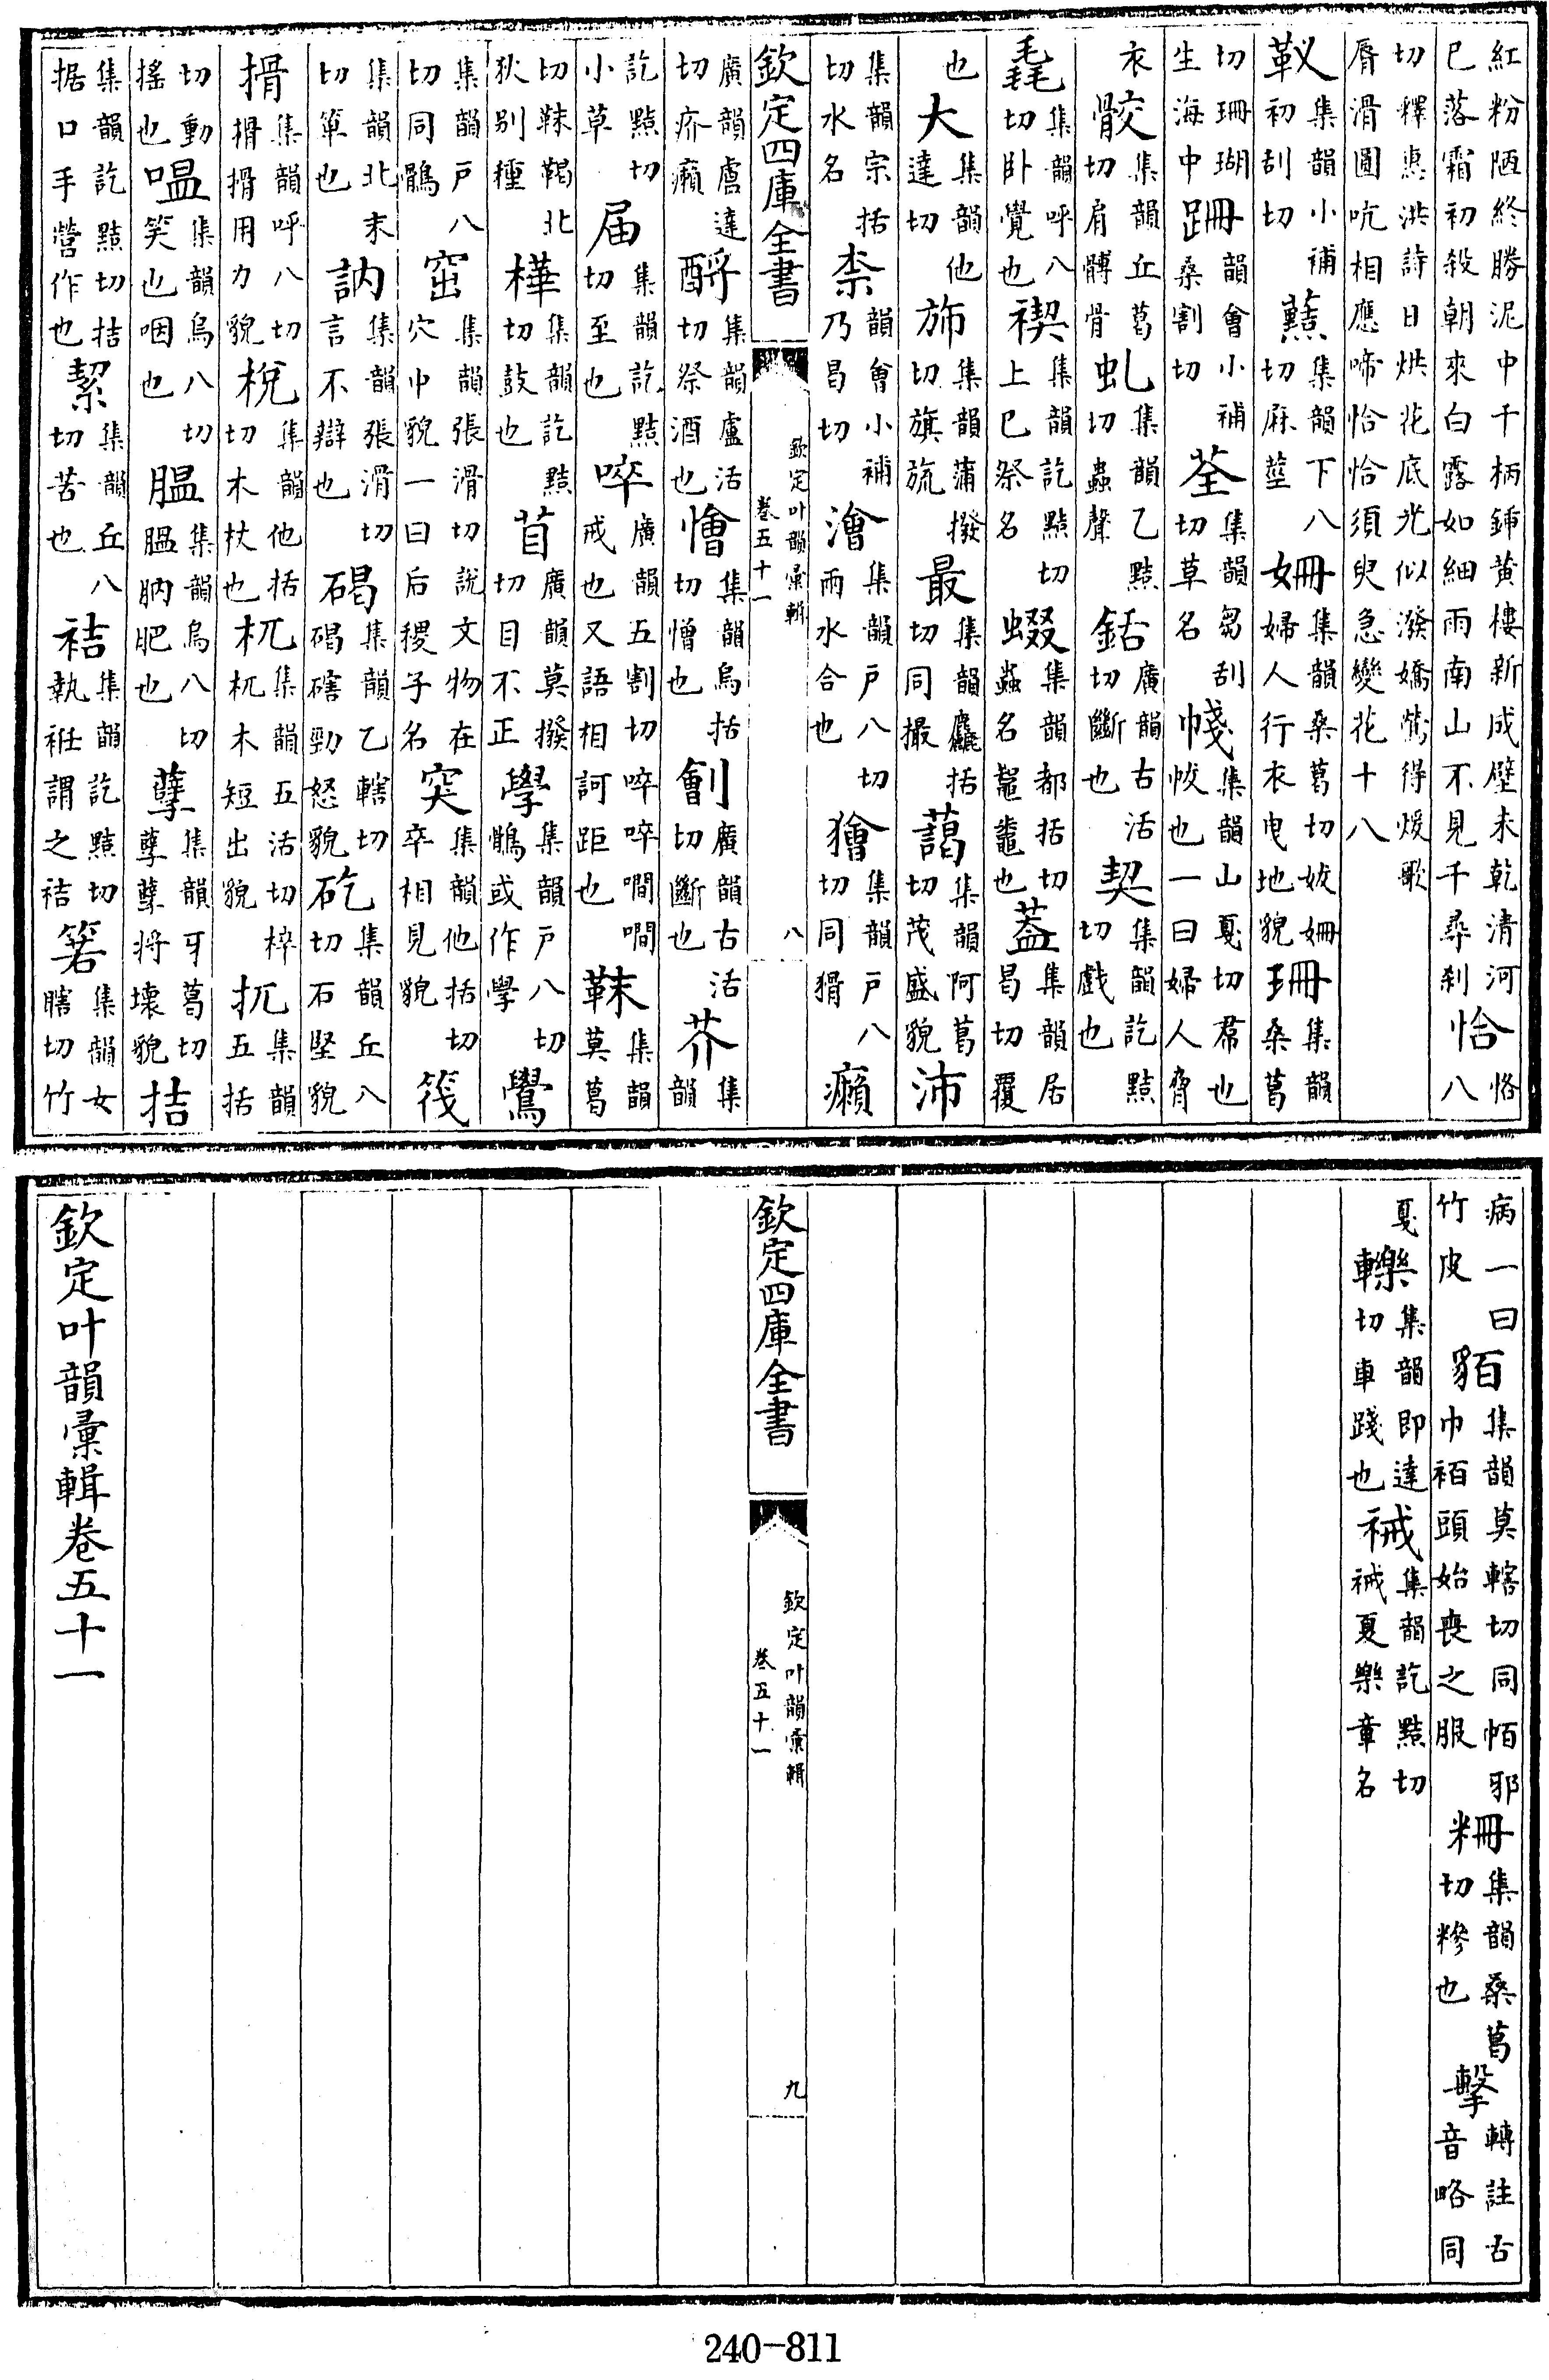 紅粉陋終勝泥中千柄鍤黃樓新成壁未乾清河
已落霜初殺朝來白露如細雨南山不見千尋刹
恰恪八
切釋惠洪詩曰烘花底光似潑嬌鶯得煖歌
脣滑圓吭相應啼恰恰須臾急變花十八
䎬集韻小補初刮切
䕸集韻下八切麻莖
姍集韻桑葛切妭姍婦人行衣曳地貌
珊集韻桑葛
切珊瑚生海中
跚韻會小補桑割切
荃集韻芻刮切草名
帴集韻山戛切帬也帗也一曰婦人脅
衣
骹集韻丘葛切肩髆骨
虬集韻乙黠切蟲聲
銛廣韻古活切斷也
契集韻訖黠切戲也
毳集韻呼八切卧覺也
禊集韻訖黠切上巳祭名
蝃集韻都括切蟲名鼅鼄也
蓋集韻居曷切覆
也
大集韻他達切
斾集韻蒲撥切旗旒
最集韻麤括切同撮
藹集韻阿葛切茂盛貌
沛
集韻宗括切水名
柰韻會小補乃曷切
澮集韻戶八切兩水合也
獪集韻戶八切同猾
癩
欽定四庫全書
欽定叶韻彙輯
卷五十一
八
廣韻盧達切疥癩
酹集韻盧活切祭酒也
懀集韻烏括切憎也
劊廣韻古活切斷也
芥集韻
訖黠切小草
屆集韻訖黠切至也
啐廣韻五割切啐啐啁啁戒也又語相訶距也
靺集韻莫葛
切靺鞨北狄别種
楎集韻訖黠切鼓也
苜廣韻莫撥切目不正
學集韻戶八切鶻或作學
鷽
集韻戶八切同鶻
窋集韻張滑切說文物在穴中貌一曰后稷子名
突集韻他括切卒相見貌
筏
集韻北末切箄也
訥集韻張滑切言不辯也
碣集韻乙轄切碣磍勁怒貌
矻集韻丘八切石堅貌
搰集韻呼八切搰搰用力貌
梲集韻他括切木杖也
杌集韻五活切椊杌木短出貌
扤集韻五括
切動摇也
嗢集韻烏八切笑也咽也
膃集韻烏八切膃肭肥也
孽集韻牙葛切孽孽將壞貌
拮
集韻訖黠切拮据口手營作也
絜集韻丘八切苦也
袺集韻訖黠切執衽謂之袺
箬集韻女瞎切竹
病一曰竹皮
貊集韻莫轄切同帕邪巾袹頭始喪之服
粣集韻桑葛切糝也
擊轉註古音略同
戛
轢集韻即達切車踐也
祴集韻訖黠切祴夏樂章名
欽定四庫全書
欽定叶韻彙輯
卷五十一
九
欽定叶韻彙輯卷五十一
240-811